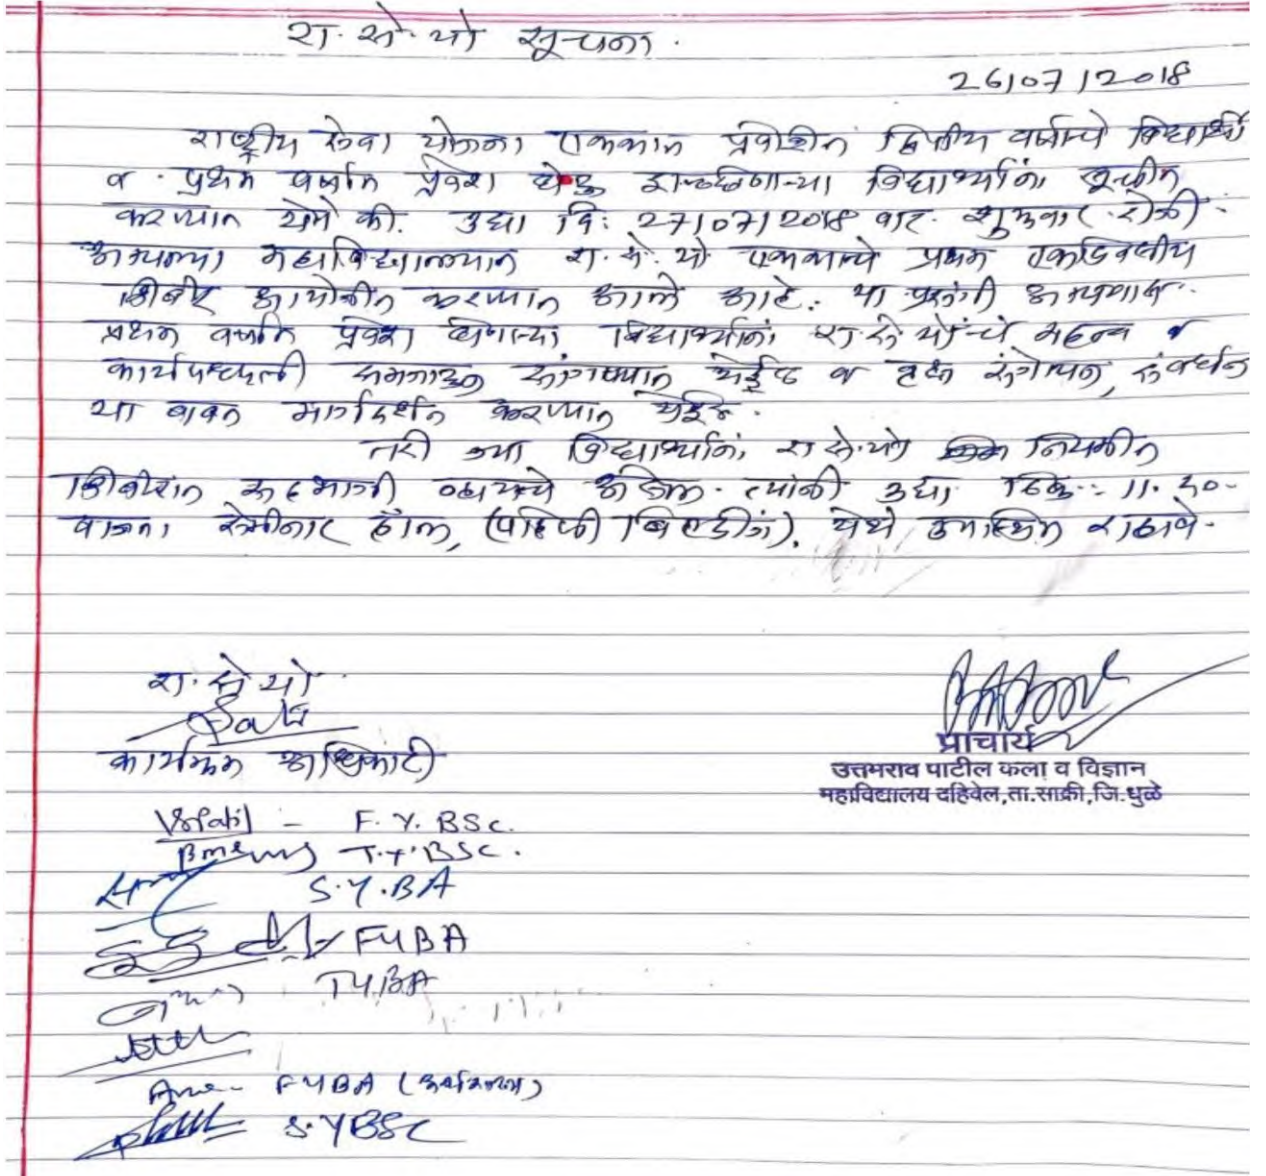 रा. से. यो सूचना.
26/07/2018
राष्ट्रीय सेवा योजना एककात प्रवेशीत द्वितीय वर्षाचे विद्यार्थी
व प्रथम वर्षात प्रवेश घेऊ इच्छिणाऱ्या विद्यार्थ्यांना सूचीत
करण्यात येते की. उद्या दि: 27/07/2018 वार. शुक्रवार रोजी
आपल्या महाविद्यालयात रा. से. यो एककाचे प्रथम एकदिवसीय
शिबीर आयोजीत करण्यात आले आहे. या प्रसंगी आपणास
प्रथम वर्षात प्रवेश घेणाऱ्या विद्यार्थ्यांना रा. से यो चे महत्व व
कार्यपध्दती समजावून सांगण्यात येईल व वृक्ष संगोपन, संवर्धन
या बाबत मार्गदर्शन करण्यात येईल.
तरी ज्या विद्यार्थ्यांना रा से. यो नियमीत
शिबीरात सहभागी व्हायचे असेल. त्यांनी उद्या ठिक: 11.30
वाजता सेमीनार हॉल, (पहिली बिल्डींग). येथे उपस्थित राहावे.
रा. से. यो.
कार्यक्रम अधिकारी
प्राचार्य
उत्तमराव पाटील कला व विज्ञान
महाविद्यालय दहिवेल, ता.साक्री, जि.धुळे
VSPatil - F. Y. BSc.
T.Y. BSC.
S.Y.BA
FYBA
TYBA
FYBA
S.YBSC